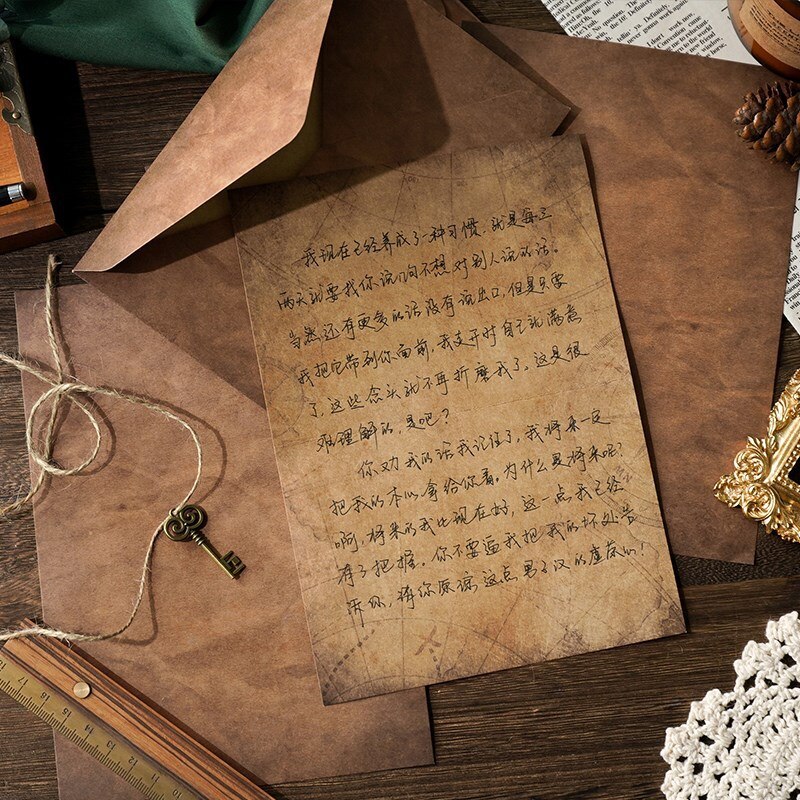 我现在已经养成了一种习惯，就是每三
两天就要找你说几句不想对别人说的话。
当然还有更多的话没有说出口，但是只要
我把它带到你面前，我走开时自己就满意
了，这些念头就不再折磨我了。这是很
难理解的，是吧？
你劝我的话我记住了，我将来一定
把我的本心拿给你看。为什么是将来呢？
啊，将来的我比现在好，这一点我已经
有了把握。你不要逼我把我的坏处告
诉你，请你原谅这点男子汉的虚荣心！